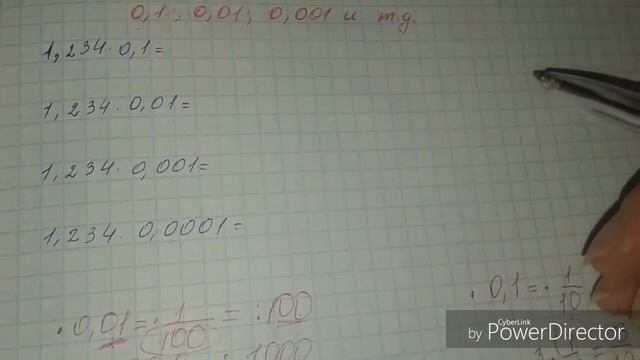 0,1; 0,01; 0,001 и т.д.
1,234·0,1=
1,234·0,01=
1,234·0,001=
1,234·0,0001=
·0,01=·1/100=:100
:1000
·0,1=·1/10
CyberLink
by PowerDirector